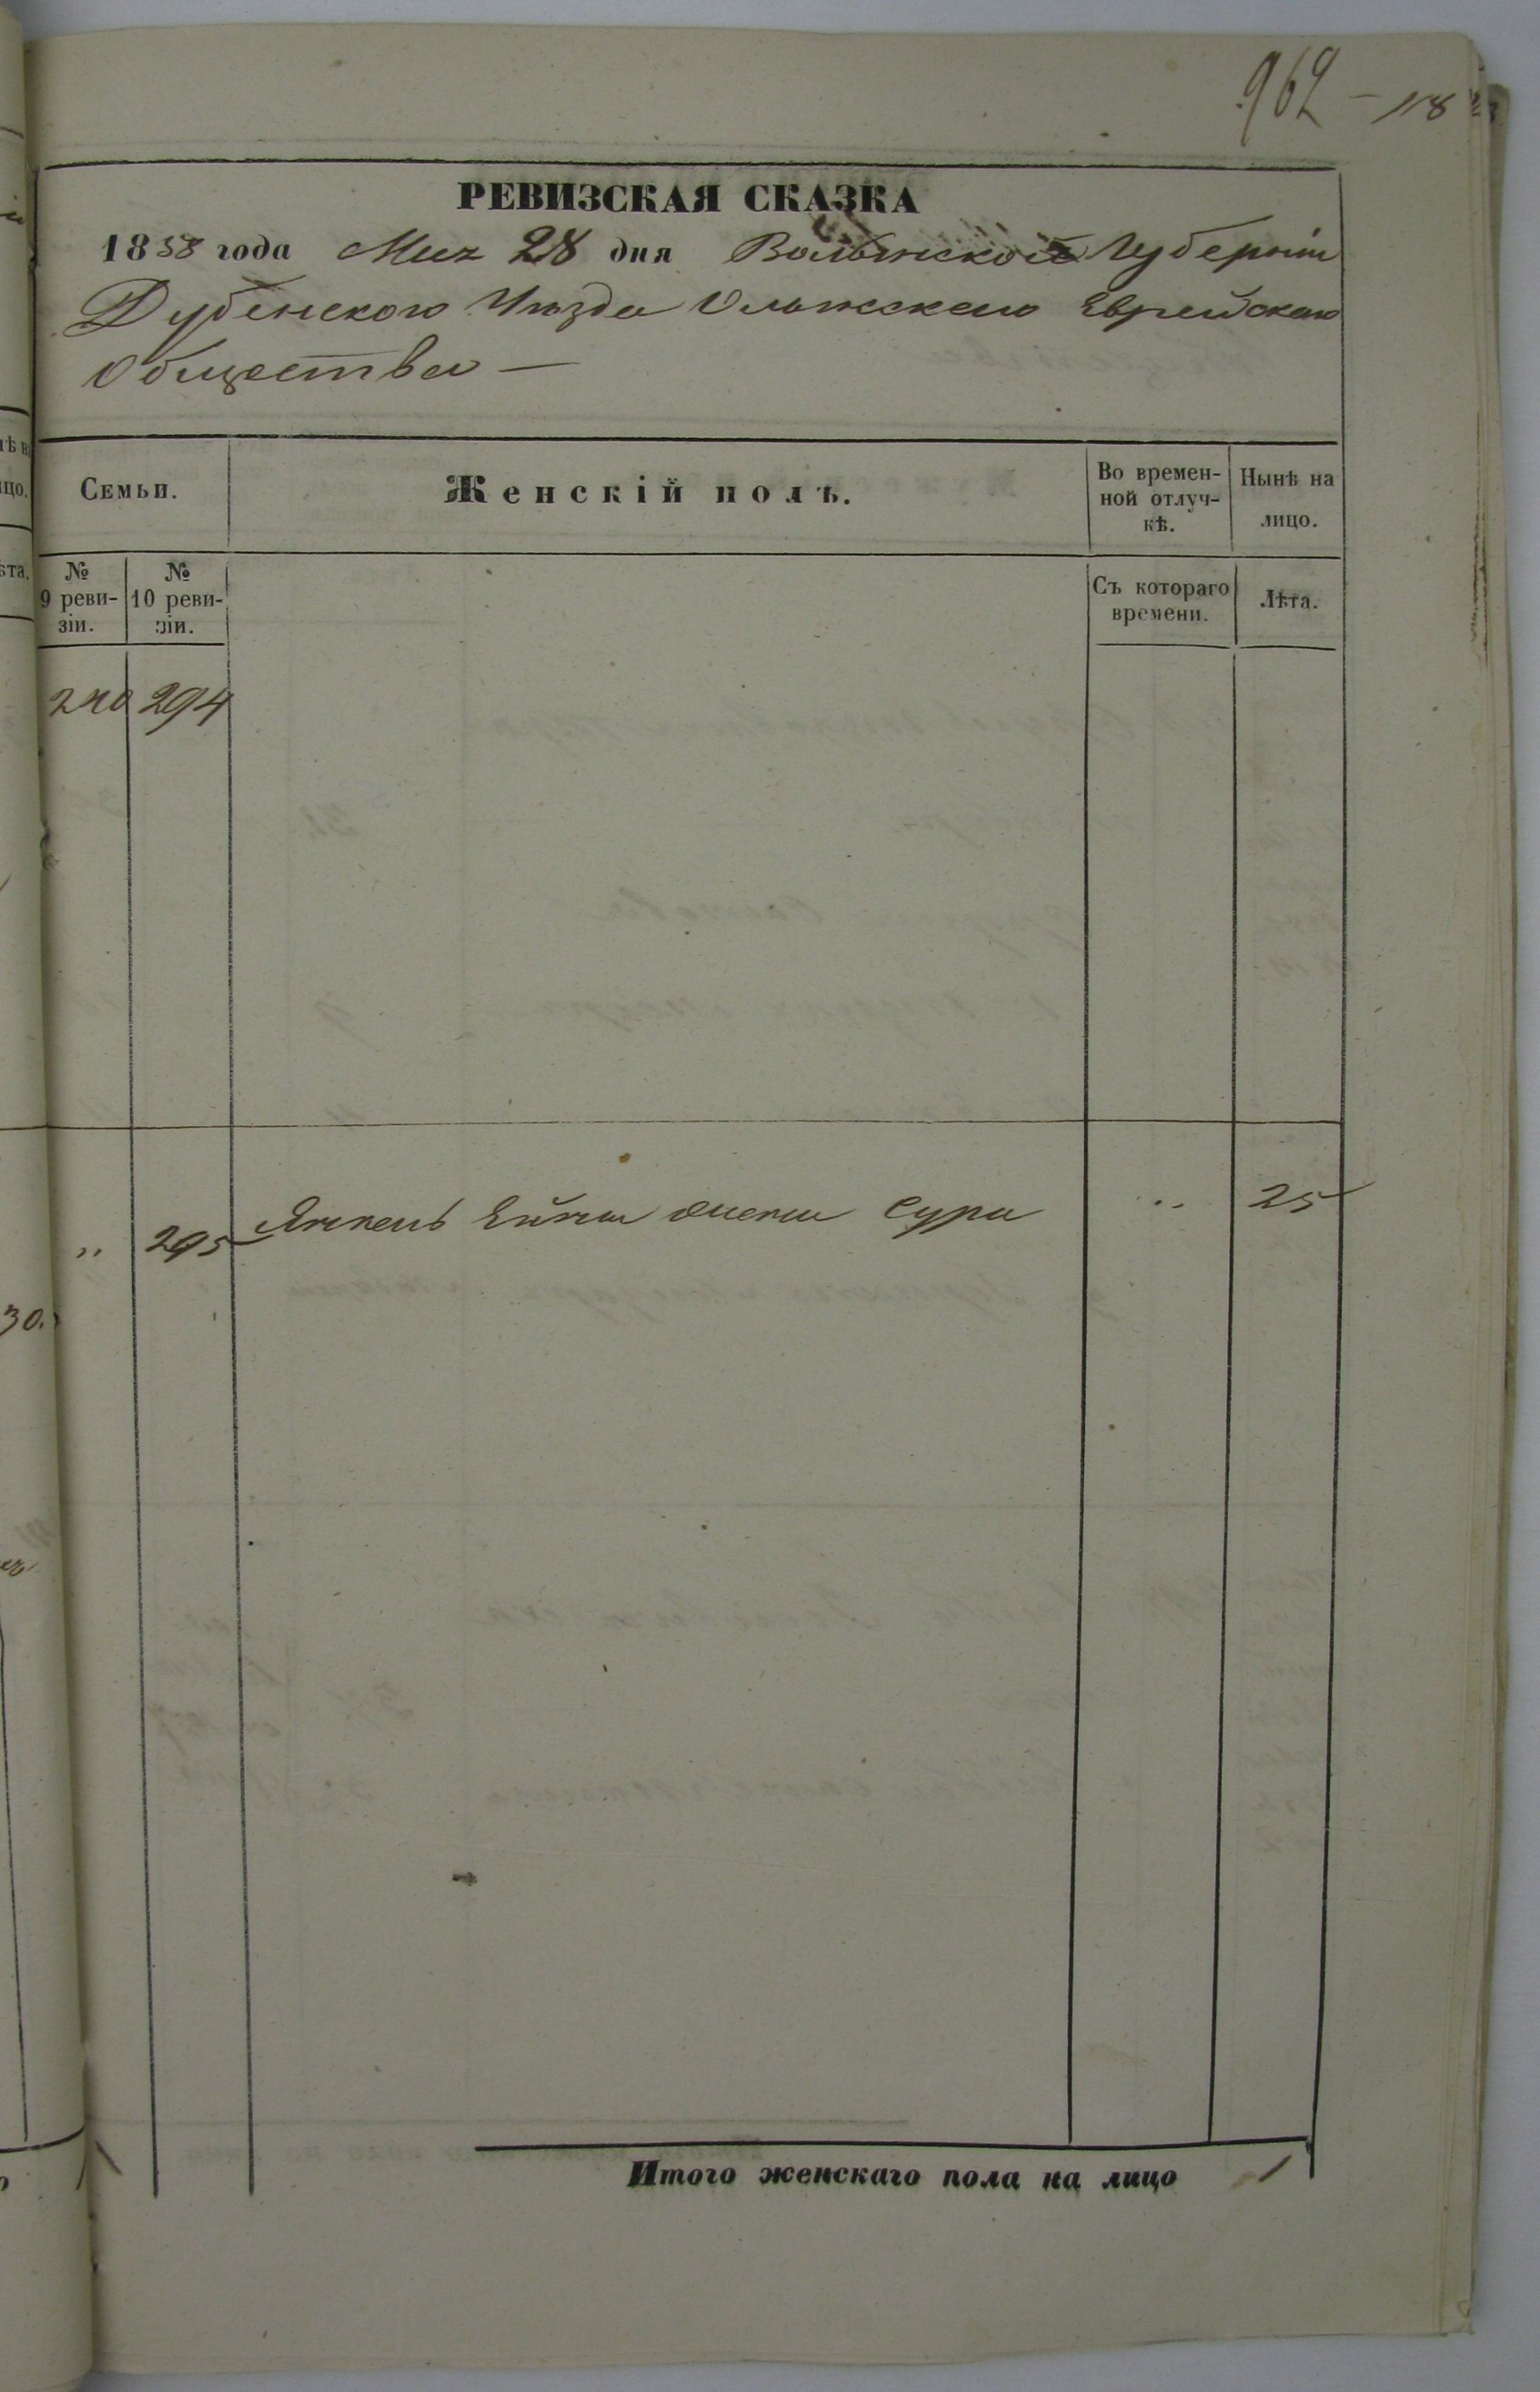 962 – 118
РЕВИЗСКАЯ СКАЗКА
1858 года Мая 28 дня Волынской Губерніи
Дубенского Уѣзда Олыкскаго Еврейскаго
Общества —
Семьи.
Женскій полъ.
Во времен-
ной отлуч-
кѣ.
Нынѣ на
лицо.
№
9 реви-
зіи.
№
10 реви-
зіи.
Съ котораго
времени.
Лѣта.
240 294
„ 295 Янкель жена Сура „ 25
30.
Итого женскаго пола на лицо 1